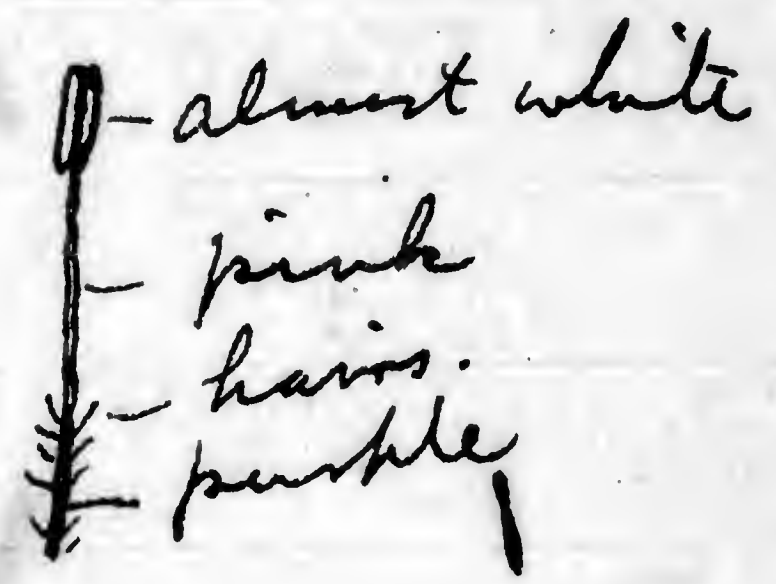 almost white
pink
hairs.
purple